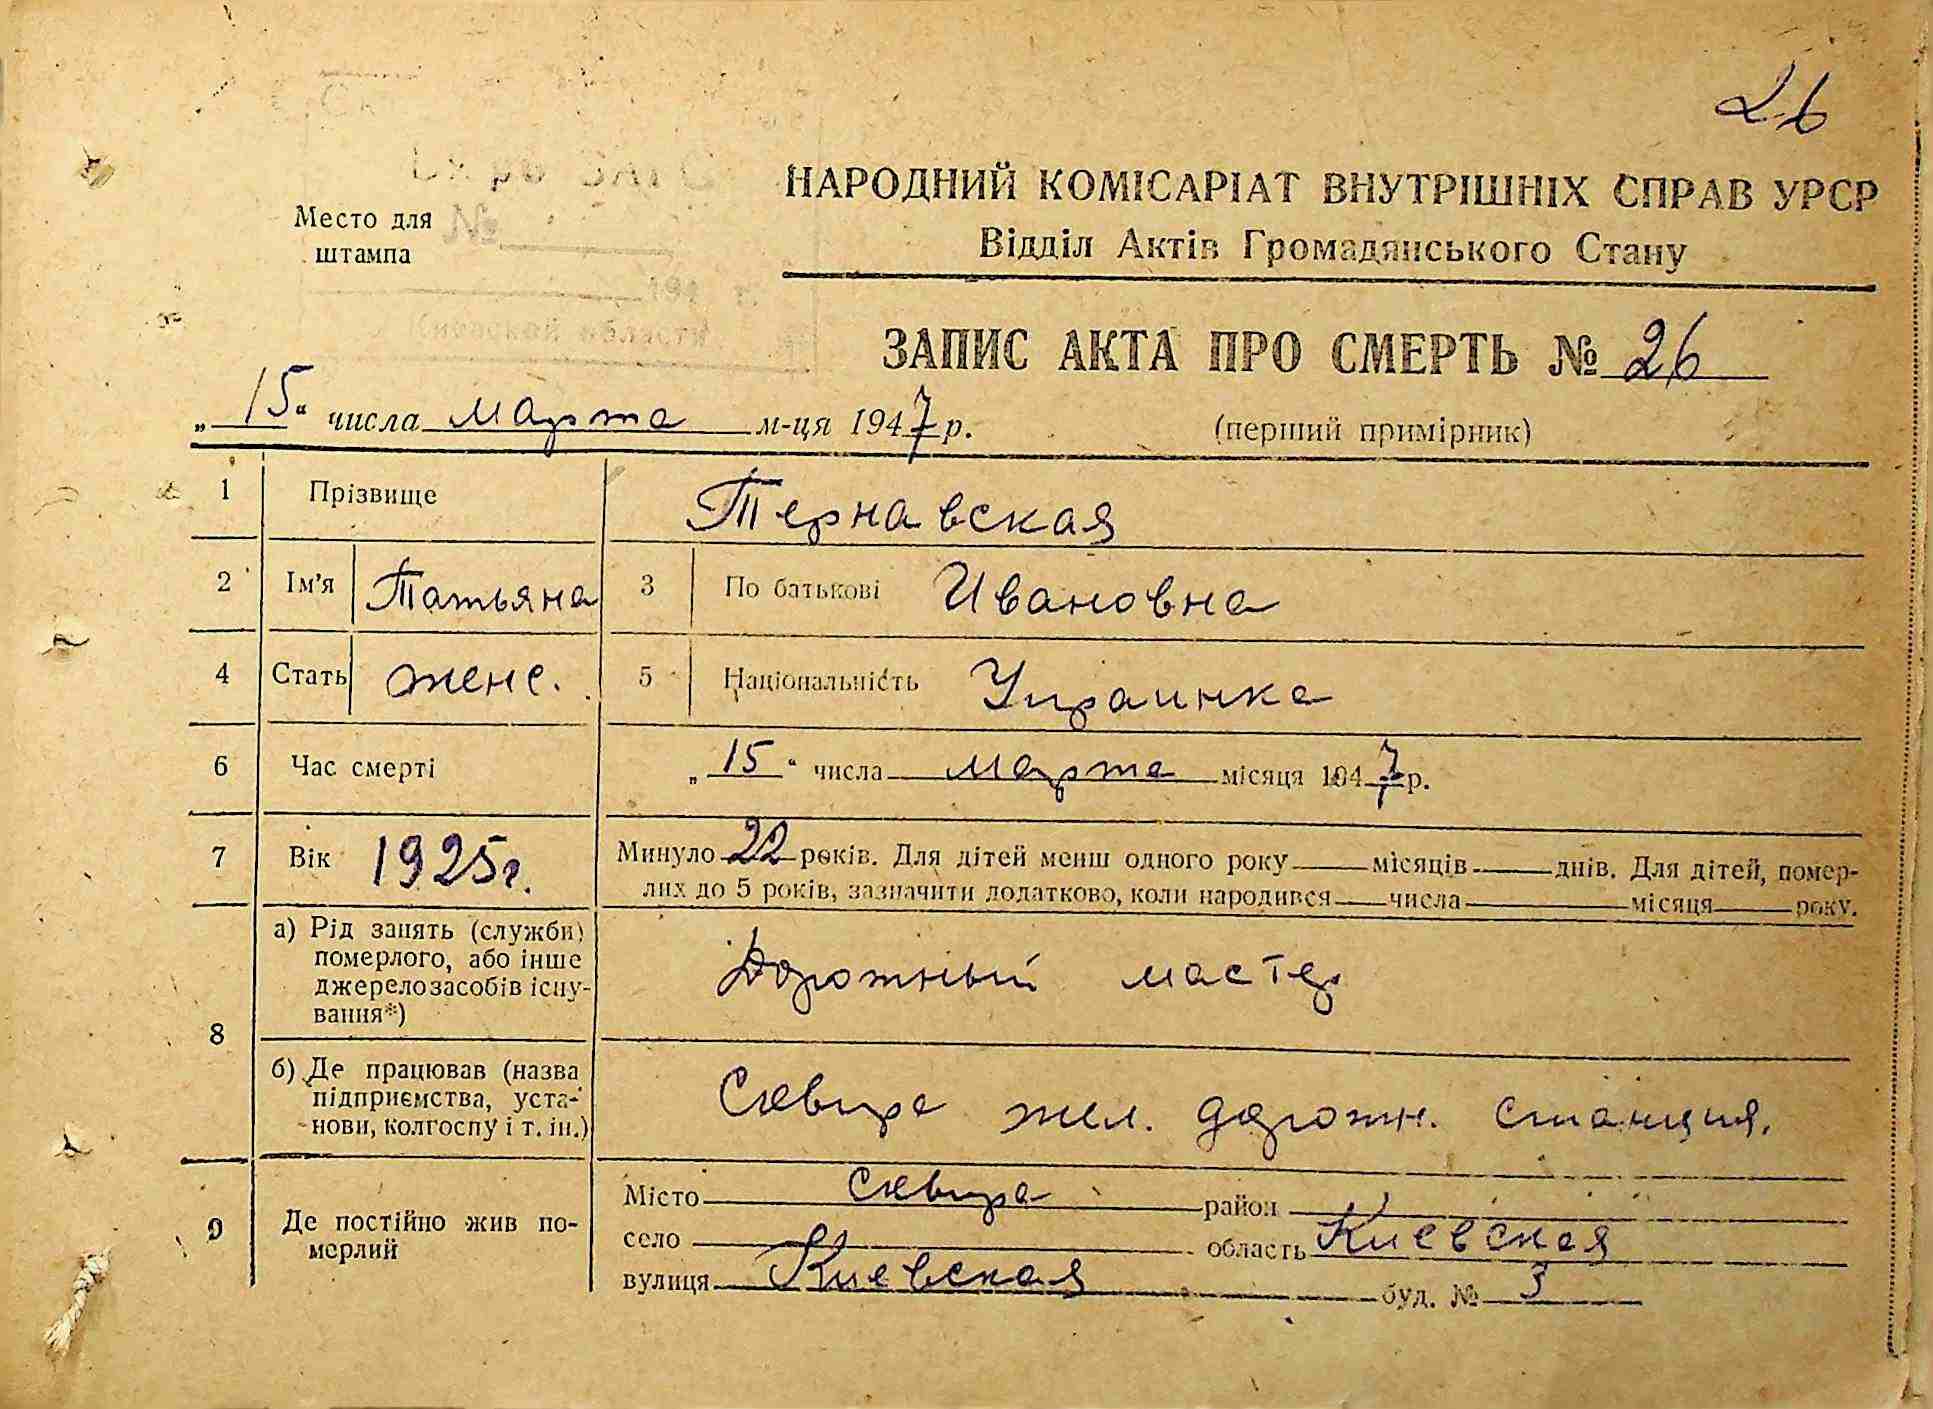 26
НАРОДНИЙ КОМІСАРІАТ ВНУТРІШНІХ СПРАВ УРСР
Відділ Актів Громадянського Стану
Место для
штампа
№
ЗАПИС АКТА ПРО СМЕРТЬ № 26
„15“ числа марта м-ця 1947 р.
(перший примірник)
1 Прізвище Тернавская
2 Ім'я Татьяна 3 По батькові Ивановна
4 Стать женс. 5 Національність Украинка
6 Час смерті „15“ числа марта місяця 1947 р.
7 Вік 1925г. Минуло 22 років. Для дітей менш одного року місяців днів. Для дітей, помер-
лих до 5 років, зазначити додатково, коли народився числа місяця року.
8 а) Рід занять (служби)
померлого, або інше
джерело засобів існу-
вання*)
Дорожный мастер
б) Де працював (назва
підприємства, уста-
нови, колгоспу і т. ін.)
Сквира жел. дорожн. станция.
9 Де постійно жив по-
мерлий
Місто Сквира район
село область Киевская
вулиця Киевская буд. № 3